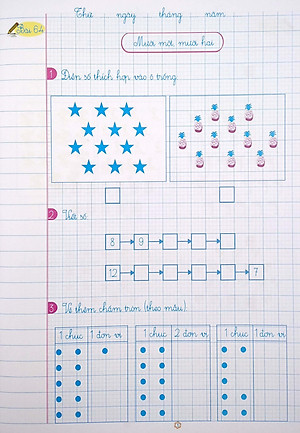 Thứ ngày tháng năm
Bài 64
Mười một, mười hai
1 Điền số thích hợp vào ô trống.
2 Viết số.
8 9
12 7
3 Vẽ thêm chấm tròn (theo mẫu).
1 chục 1 đơn vị 1 chục 2 đơn vị 1 chục 1 đơn vị